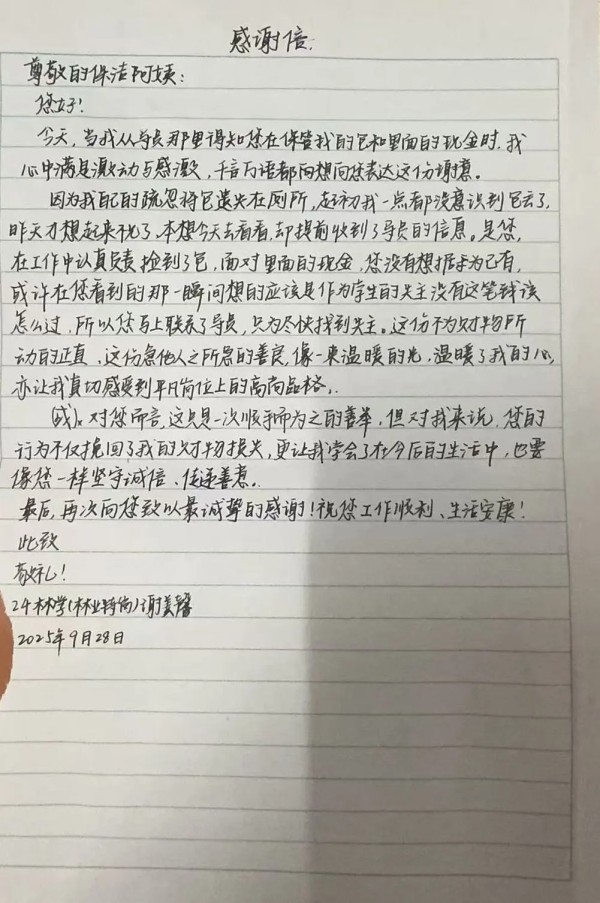 感谢信.
尊敬的保洁阿姨：
您好！
今天，当我从导员那里得知您在保管我的包和里面的现金时，我
心中满是激动与感激，千言万语都向想向您表达这份谢意。
因为我自己的疏忽将包遗失在厕所，起初我一点都没意识到包丢了，
昨天才想起来说了，本想今天去看看，却提前收到了导员的信息。是您，
在工作中认真负责捡到了包，面对里面的现金，您没有想据为己有，
或许在您看到的那一瞬间想的应该是作为学生的失主没有这笔钱该
怎么过，所以您马上联系了导员，只为尽快找到失主。这份不为财物所
动的正直，这份急他人之所急的善良，像一束温暖的光，温暖了我的心，
亦让我真切感受到平凡岗位上的高尚品格，.
(或)。对您而言，这只是一次顺手而为之的善举，但对我来说，您的
行为不仅挽回了我的财物损失，更让我学会了在今后的生活中，也要
像您一样坚守诚信、传递善意。
最后，再次向您致以最诚挚的感谢！祝您工作顺利、生活安康！
此致
敬礼！
24林学(林业特岗)谢美馨
2025年9月28日